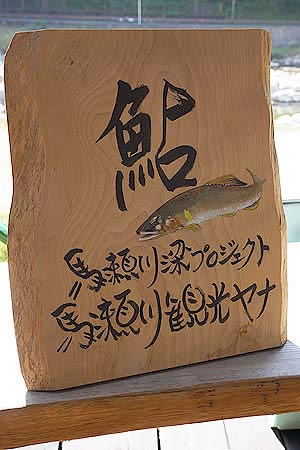 鮎
馬瀬川梁プロジェクト
馬瀬川観光ヤナ